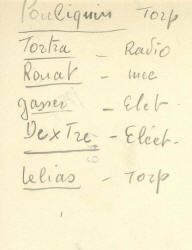 Pouliquin Torp
Tortra _ Radio
Rouat _ mec
gasser - Elct.
DexTre - Elect.
Lelias - Torp